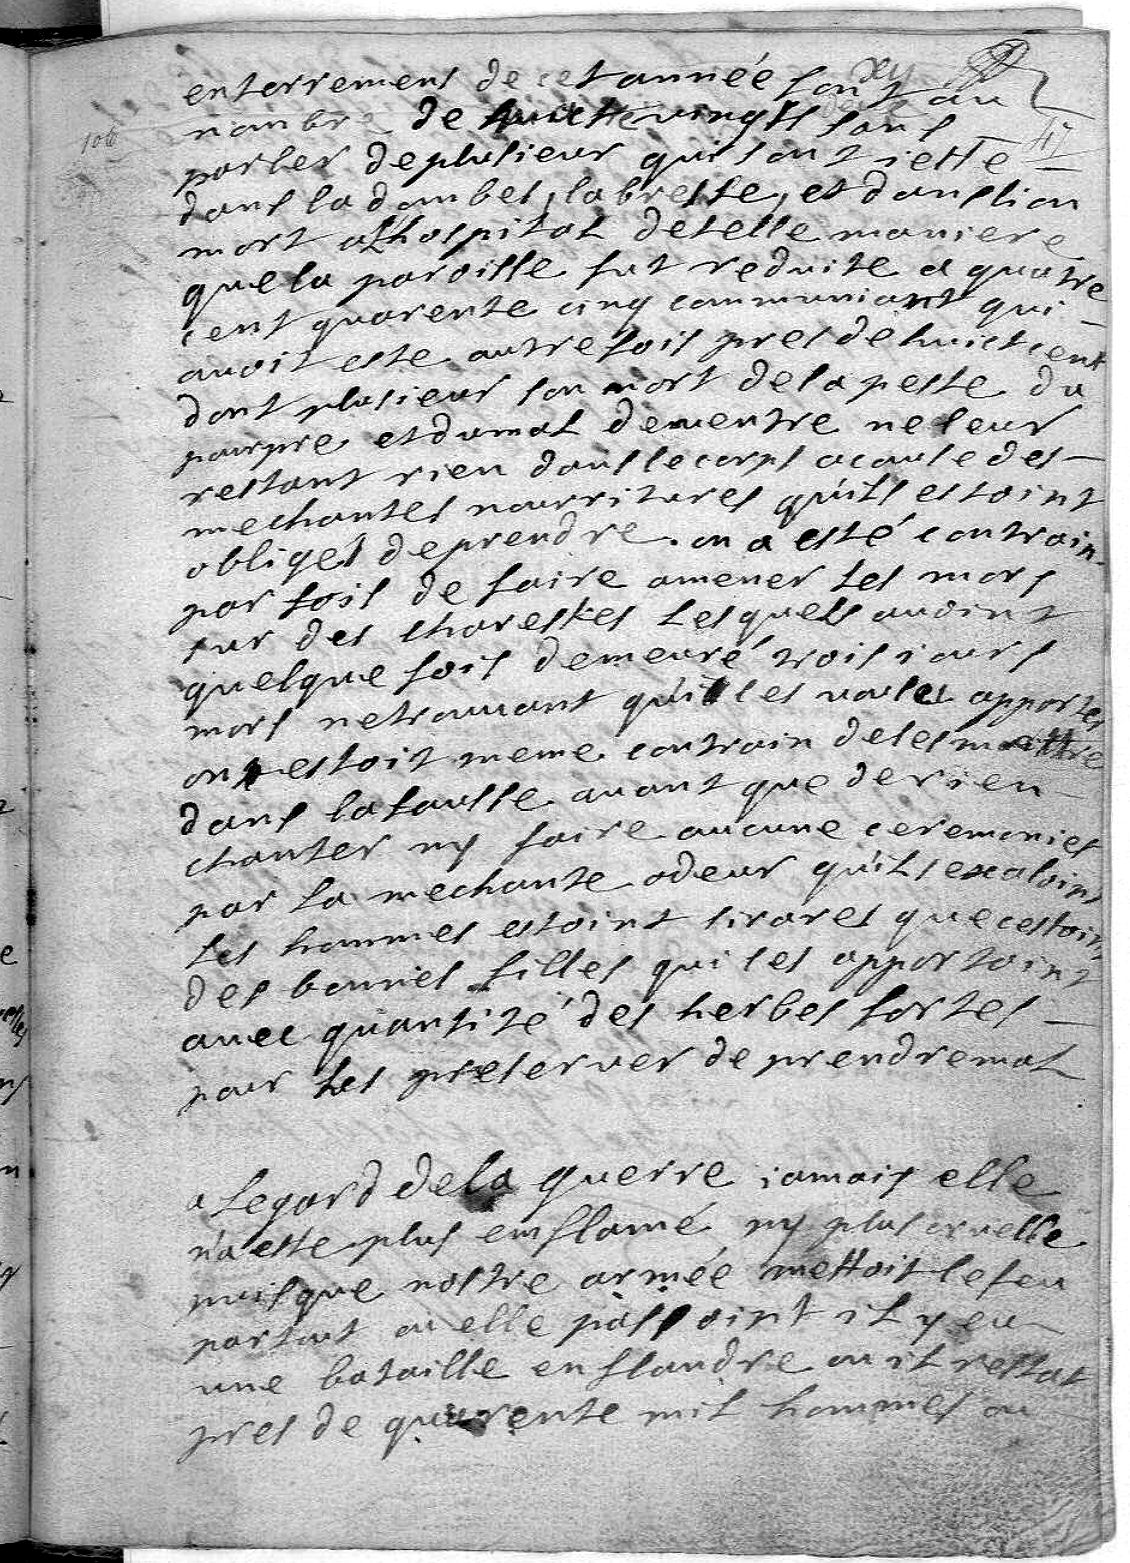 xy
enterremens de cet année sont au
106
nombre de huictte vingts sans
parler de plusieur qui sont iette
dans la dombes, la bresse, et dans lion
mort a lhospital de telle maniere
que la paroisse fut reduite a quatre
cent quarente cinq communiant qui
avoit este autre fois pres de huict cent
dont plusieur son mort de la peste du
pourpre et du mal de ventre ne leur
restant rien dans le corps a cause des
mechantes nourritures quils estoint
obliges de prendre. on a esté contrain
par fois de faire amener les mors
sur des charestes lesquels avoint
quelque fois demeuré trois iours
mors ne trouvant qui les voulu apporter
on estoit meme contrain de les mettre
dans la fausse avant que de rien
chanter ny faire aucune ceremonies
par la mechante odeur quils exaloint
les hommes estoint si rares que cestoint
des bonnes filles qui les apportoint
avec quantité des herbes fortes
pour les preserver de prendre mal
a legard de la guerre iamais elle
na este plus enflamé ny plus cruelle
puisque nostre armée mettoit le feu
partout ou elle passoint il y eu
une bataille en flandre ou il restat
pres de quarente mil hommes ou